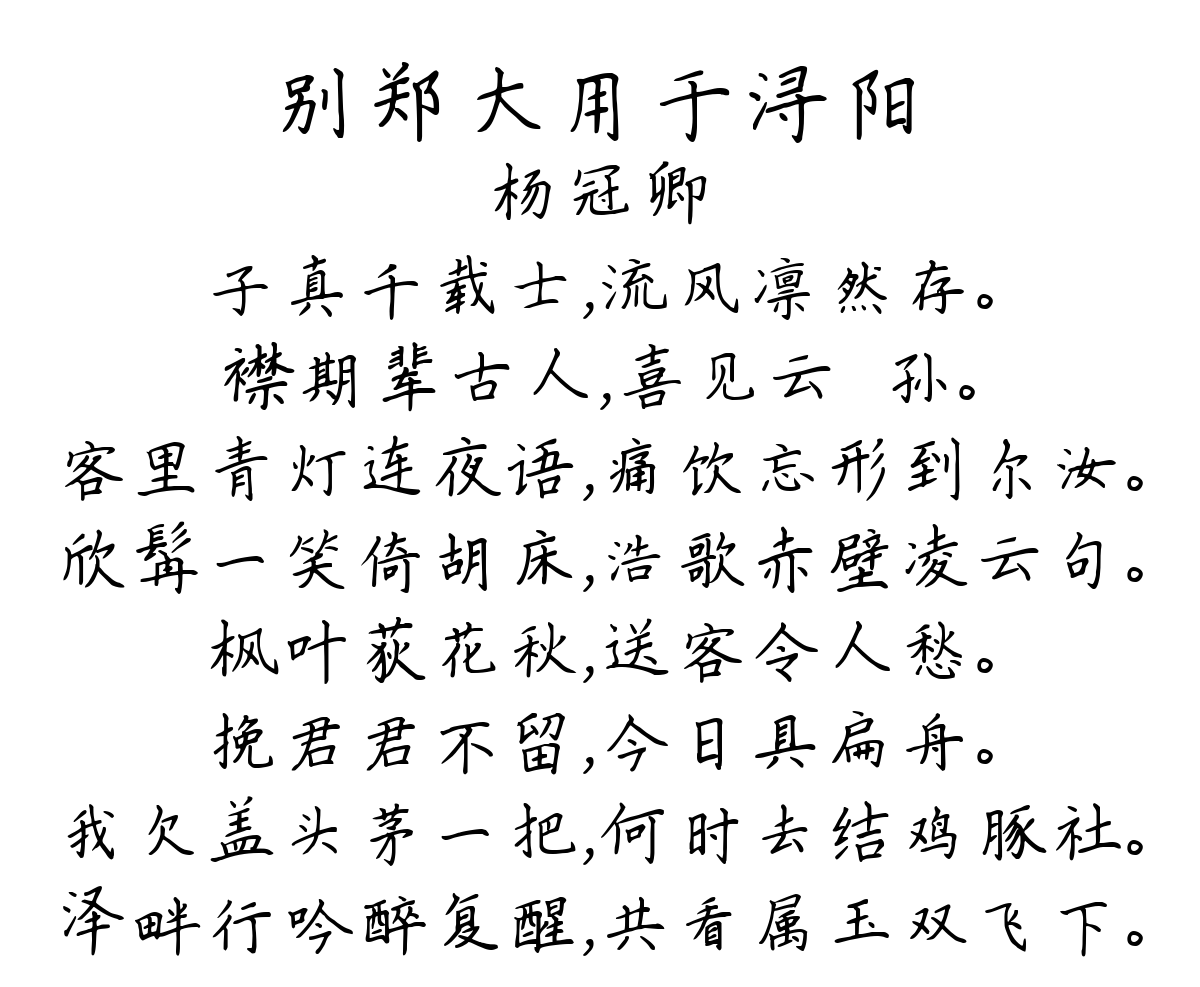 别郑大用于浔阳
杨冠卿
子真千载士,流风凛然存。
襟期辈古人,喜见云 孙。
客里青灯连夜语,痛饮忘形到尔汝。
欣髯一笑倚胡床,浩歌赤壁凌云句。
枫叶荻花秋,送客令人愁。
挽君君不留,今日具扁舟。
我欠盖头茅一把,何时去结鸡豚社。
泽畔行吟醉复醒,共看属玉双飞下。